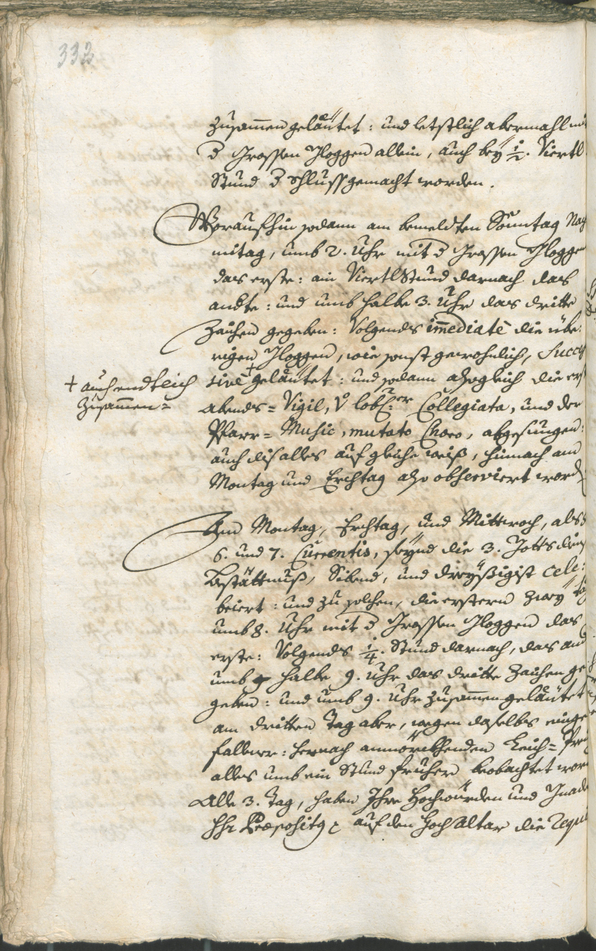 333
zusammen geläutet: und letstlich abermahl mit
d Grossen Gloggen allein, auch bey ½. Viertl
Stund d schluss gemacht worden.
Woraufhin sodann am bemeldten Sonntag Nach
mitag, umb 2. Uhr mit d Grossen Gloggen
das erste: ain Viertl Stund darnach das
andte: und umb halbe 3. Uhr das dritte
Zaichen gegeben: Volgends immediate die übr
rigen Gloggen, wie sonst gewohnlich, Succes
+ auch endtlich
zusammen =
sive + geläutet: und sodann alsogleich die erst
abends = Vigil, V löbl: Collegiata, und der
Pfarr = Music, mutato Choro, abgesungen:
auch dis alles auf gleiche weiß, hinnach am
Montag und Erchtag also observiert word
Am Montag, Erchtag, und Mittwoch, als 5
6. und 7. Currentis, seynd die 3. Gotts dienst
Bestättnuß, Sibend, und dreyßigist cele:
briert: und zu solchen, die erstern zwey täg
umb 8. Uhr mit d Grossen Gloggen das
erste: Volgends ¼. Stund darnach, das and
umb halbe 9. Uhr das dritte Zaichen ge
geben: und umb 9. Uhr zusammen geläutet
am dritten Tag aber, wegen daselbs einge
fallner: hernach Leich =
alles umb ein Stund früher beobachtet word
Alle 3. Tag, haben Ihro Hochwürden und Gnade
Hr Præpositus auf dem Hoch Altar die Requi